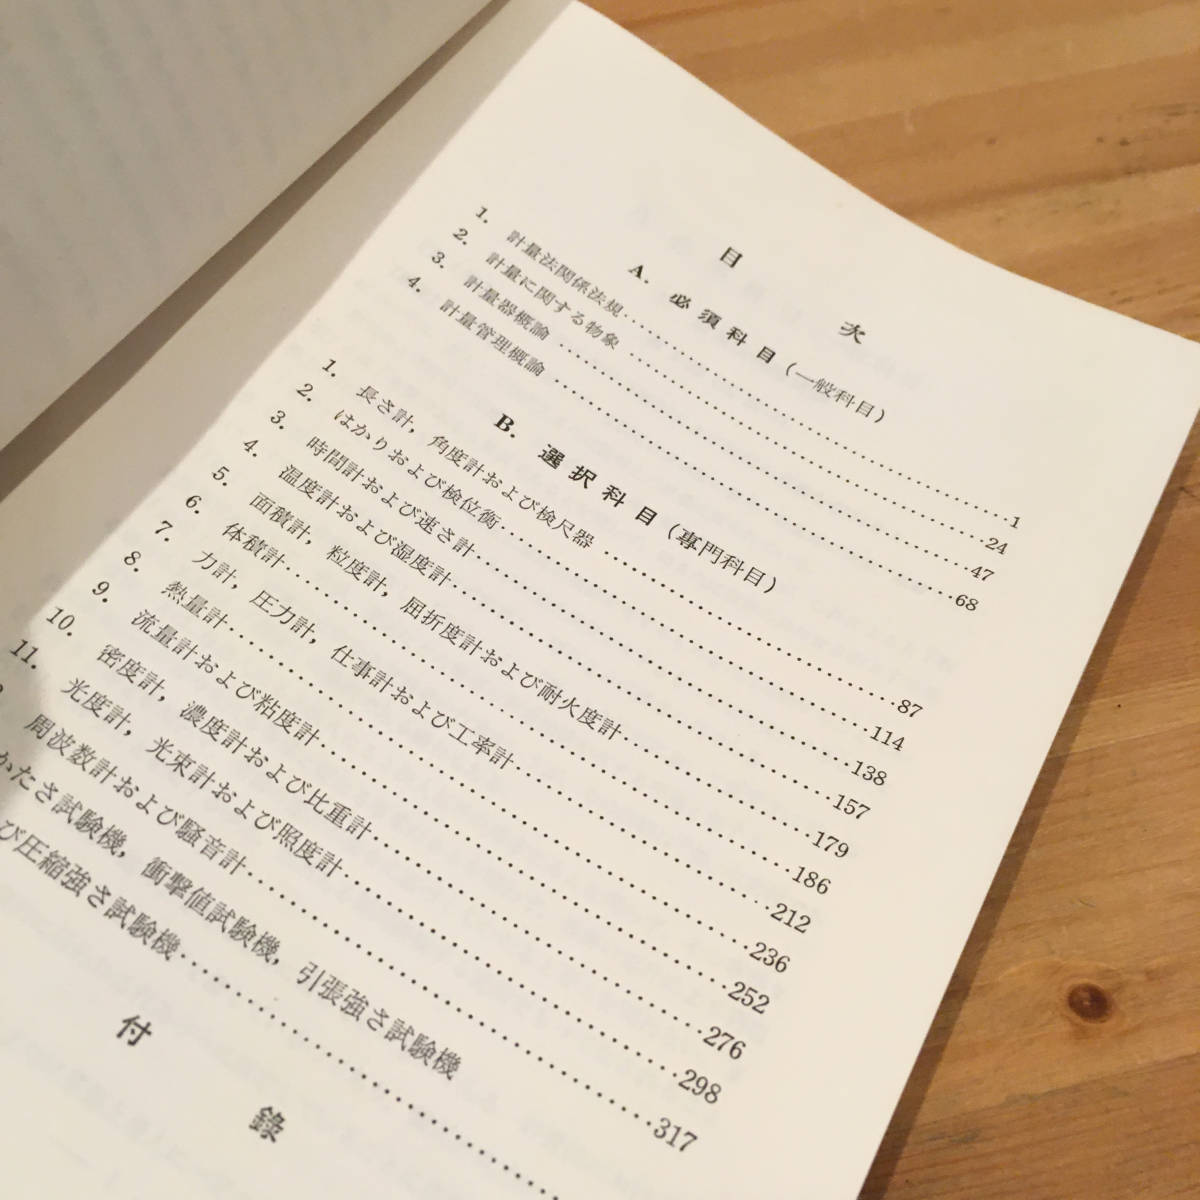 目 次
A. 必須科目(一般科目)
1. 計量法関係法規……………1
2. 計量に関する物象……………24
3. 計量器概論……………47
4. 計量管理概論……………68
B. 選択科目(専門科目)
1. 長さ計，角度計および検尺器……………87
2. はかりおよび検位衡……………114
3. 時間計および速さ計……………138
4. 温度計および湿度計……………157
5. 面積計，粒度計，屈折度計および耐火度計……………179
6. 体積計……………186
7. 力計，圧力計，仕事計および工率計……………212
8. 熱量計……………236
9. 流量計および粘度計……………252
10. 密度計，濃度計および比重計……………276
11. 光度計，光束計および照度計……………298
周波数計および騒音計……………317
かたさ試験機，衝撃値試験機，引張強さ試験機
び圧縮強さ試験機……………
付 錄